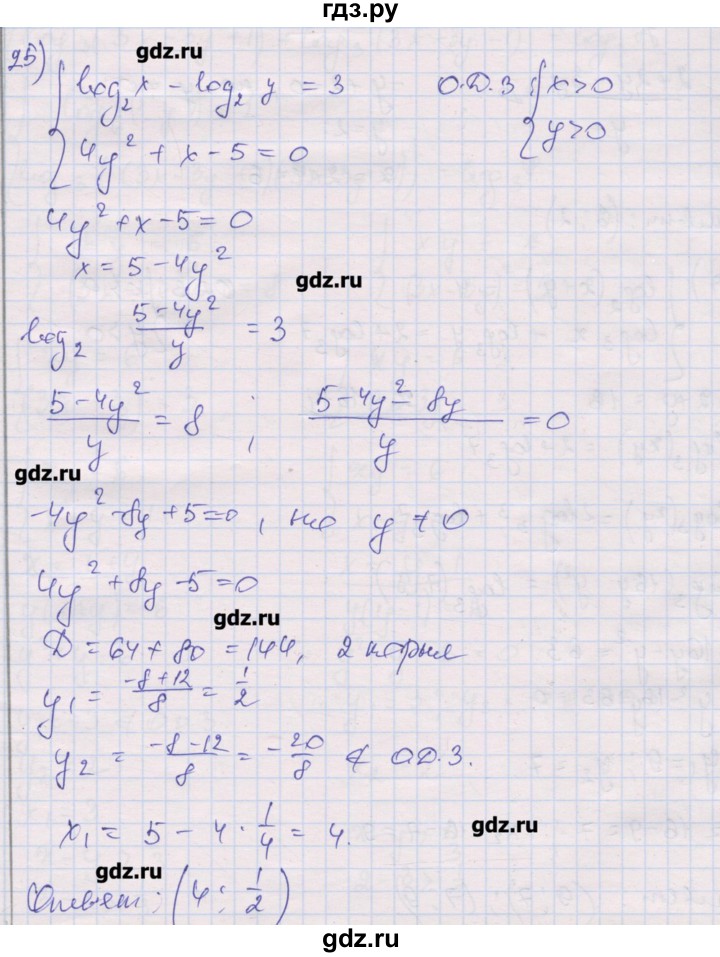 гдз.ру
gdz.ru
25) { log₂ x - log₂ y = 3    О.Д.З { x > 0
4y² + x - 5 = 0    y > 0
4y² + x - 5 = 0
x = 5 - 4y²
gdz.ru
log₂ (5 - 4y²)/y = 3
(5 - 4y²)/y = 8 ; (5 - 4y² - 8y)/y = 0
gdz.ru
-4y² - 8y + 5 = 0, но y ≠ 0
4y² + 8y - 5 = 0
gdz.ru
D = 64 + 80 = 144, 2 корня
y₁ = (-8 + 12)/8 = 1/2
y₂ = (-8 - 12)/8 = -20/8 ∉ О.Д.З.
x₁ = 5 - 4 · 1/4 = 4.
gdz.ru
gdz.ru
Ответ: (4; 1/2)
gdz.ru